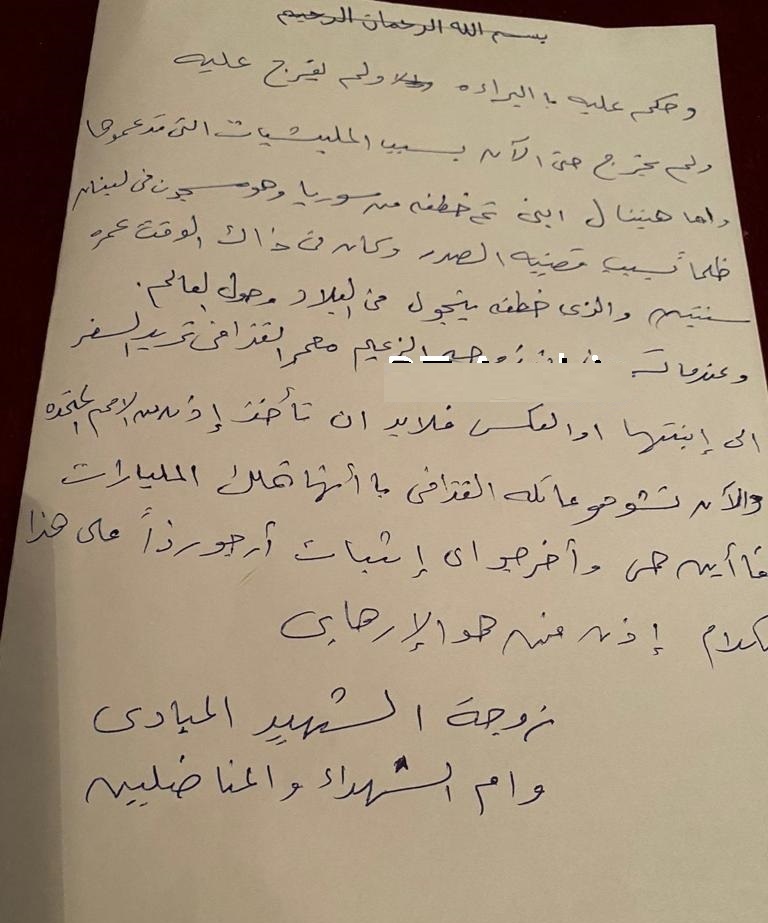 بسم الله الرحمان الرحيم
وحكم عليه باالبراءه ولم يفرج عليه
ولم يخرج حتى الآن بسبب المليشيات التى تدعموها
واما هنيبال ابنى تم خطفه من سوريا وهو مسجون فى لبنان
ظلماً بسبب قضيه الصدر وكان فى ذاك الوقت عمره
سنتين والذى خطفه يتجول فى البلاد وحول العالم.
وعندما زوجه الزعيم معمر القذافى تريد السفر
الى إبنتها او العكس فلابد ان تأخذ إذن من الامم المتحده
والآن تشوهو عائله القذافى باأنها تملك المليارات
فاأين هى وأخرجو اى إثبات أرجو رداً على هذا
الكلام إذن من هو الإرهابى
زوجة الشهيد المبادى
وام الشهداء والمناضليين